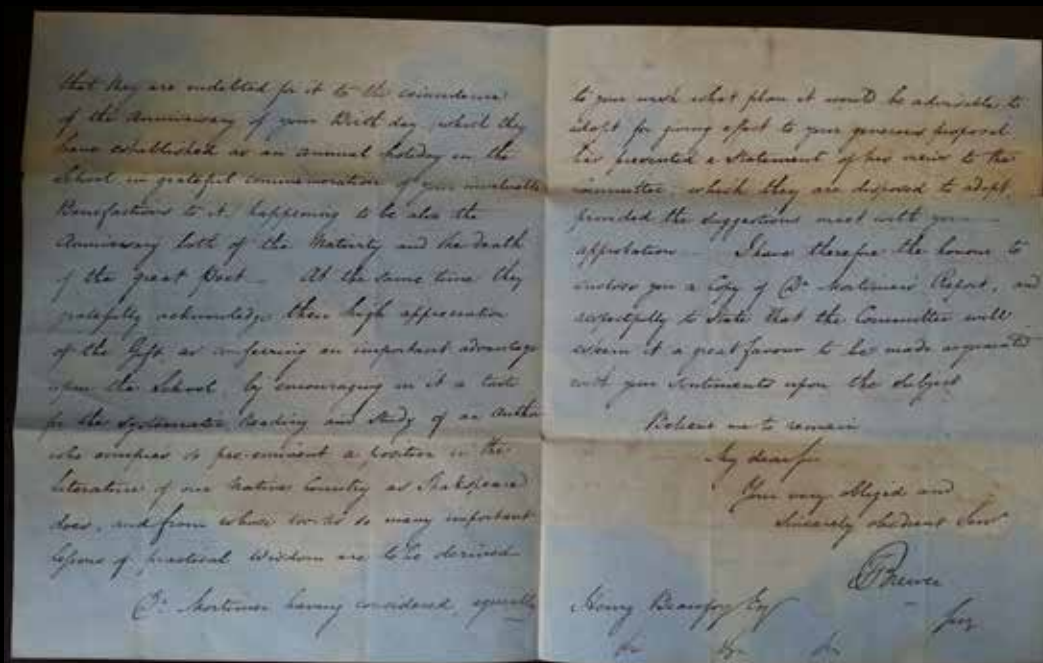 that they are indebted for it to the coincidence
of the Anniversary of your Birth day, which they
have established as an annual holiday in the
School, in grateful commemoration of your invaluable
Benefactions to it, happening to be also the
Anniversary both of the Nativity and the death
of the great Poet — At the same time they
gratefully acknowledge their high appreciation
of the Gift, as conferring an important advantage
upon the School, by encouraging in it a taste
for the systematic Reading and Study of an Author
who occupies so pre-eminent a position in the
literature of our Native Country as Shakspeare
does, and from whose works so many important
lessons of practical Wisdom are to be derived
Dr Mortimer having considered, agreeably
to your wish what plan it would be advisable to
adopt for giving effect to your generous proposal
has presented a Statement of his views to the
Committee, which they are disposed to adopt,
provided the suggestions meet with your
approbation — I have therefore the honour to
enclose you a Copy of Dr Mortimer's Report, and
respectfully to state that the Committee will
esteem it a great favour to be made acquainted
with your sentiments upon the subject
Believe me to remain
My dear Sir
Your very obliged and
Sincerely obedient Servt
Brewer
Secy
Henry Beaufoy Esq